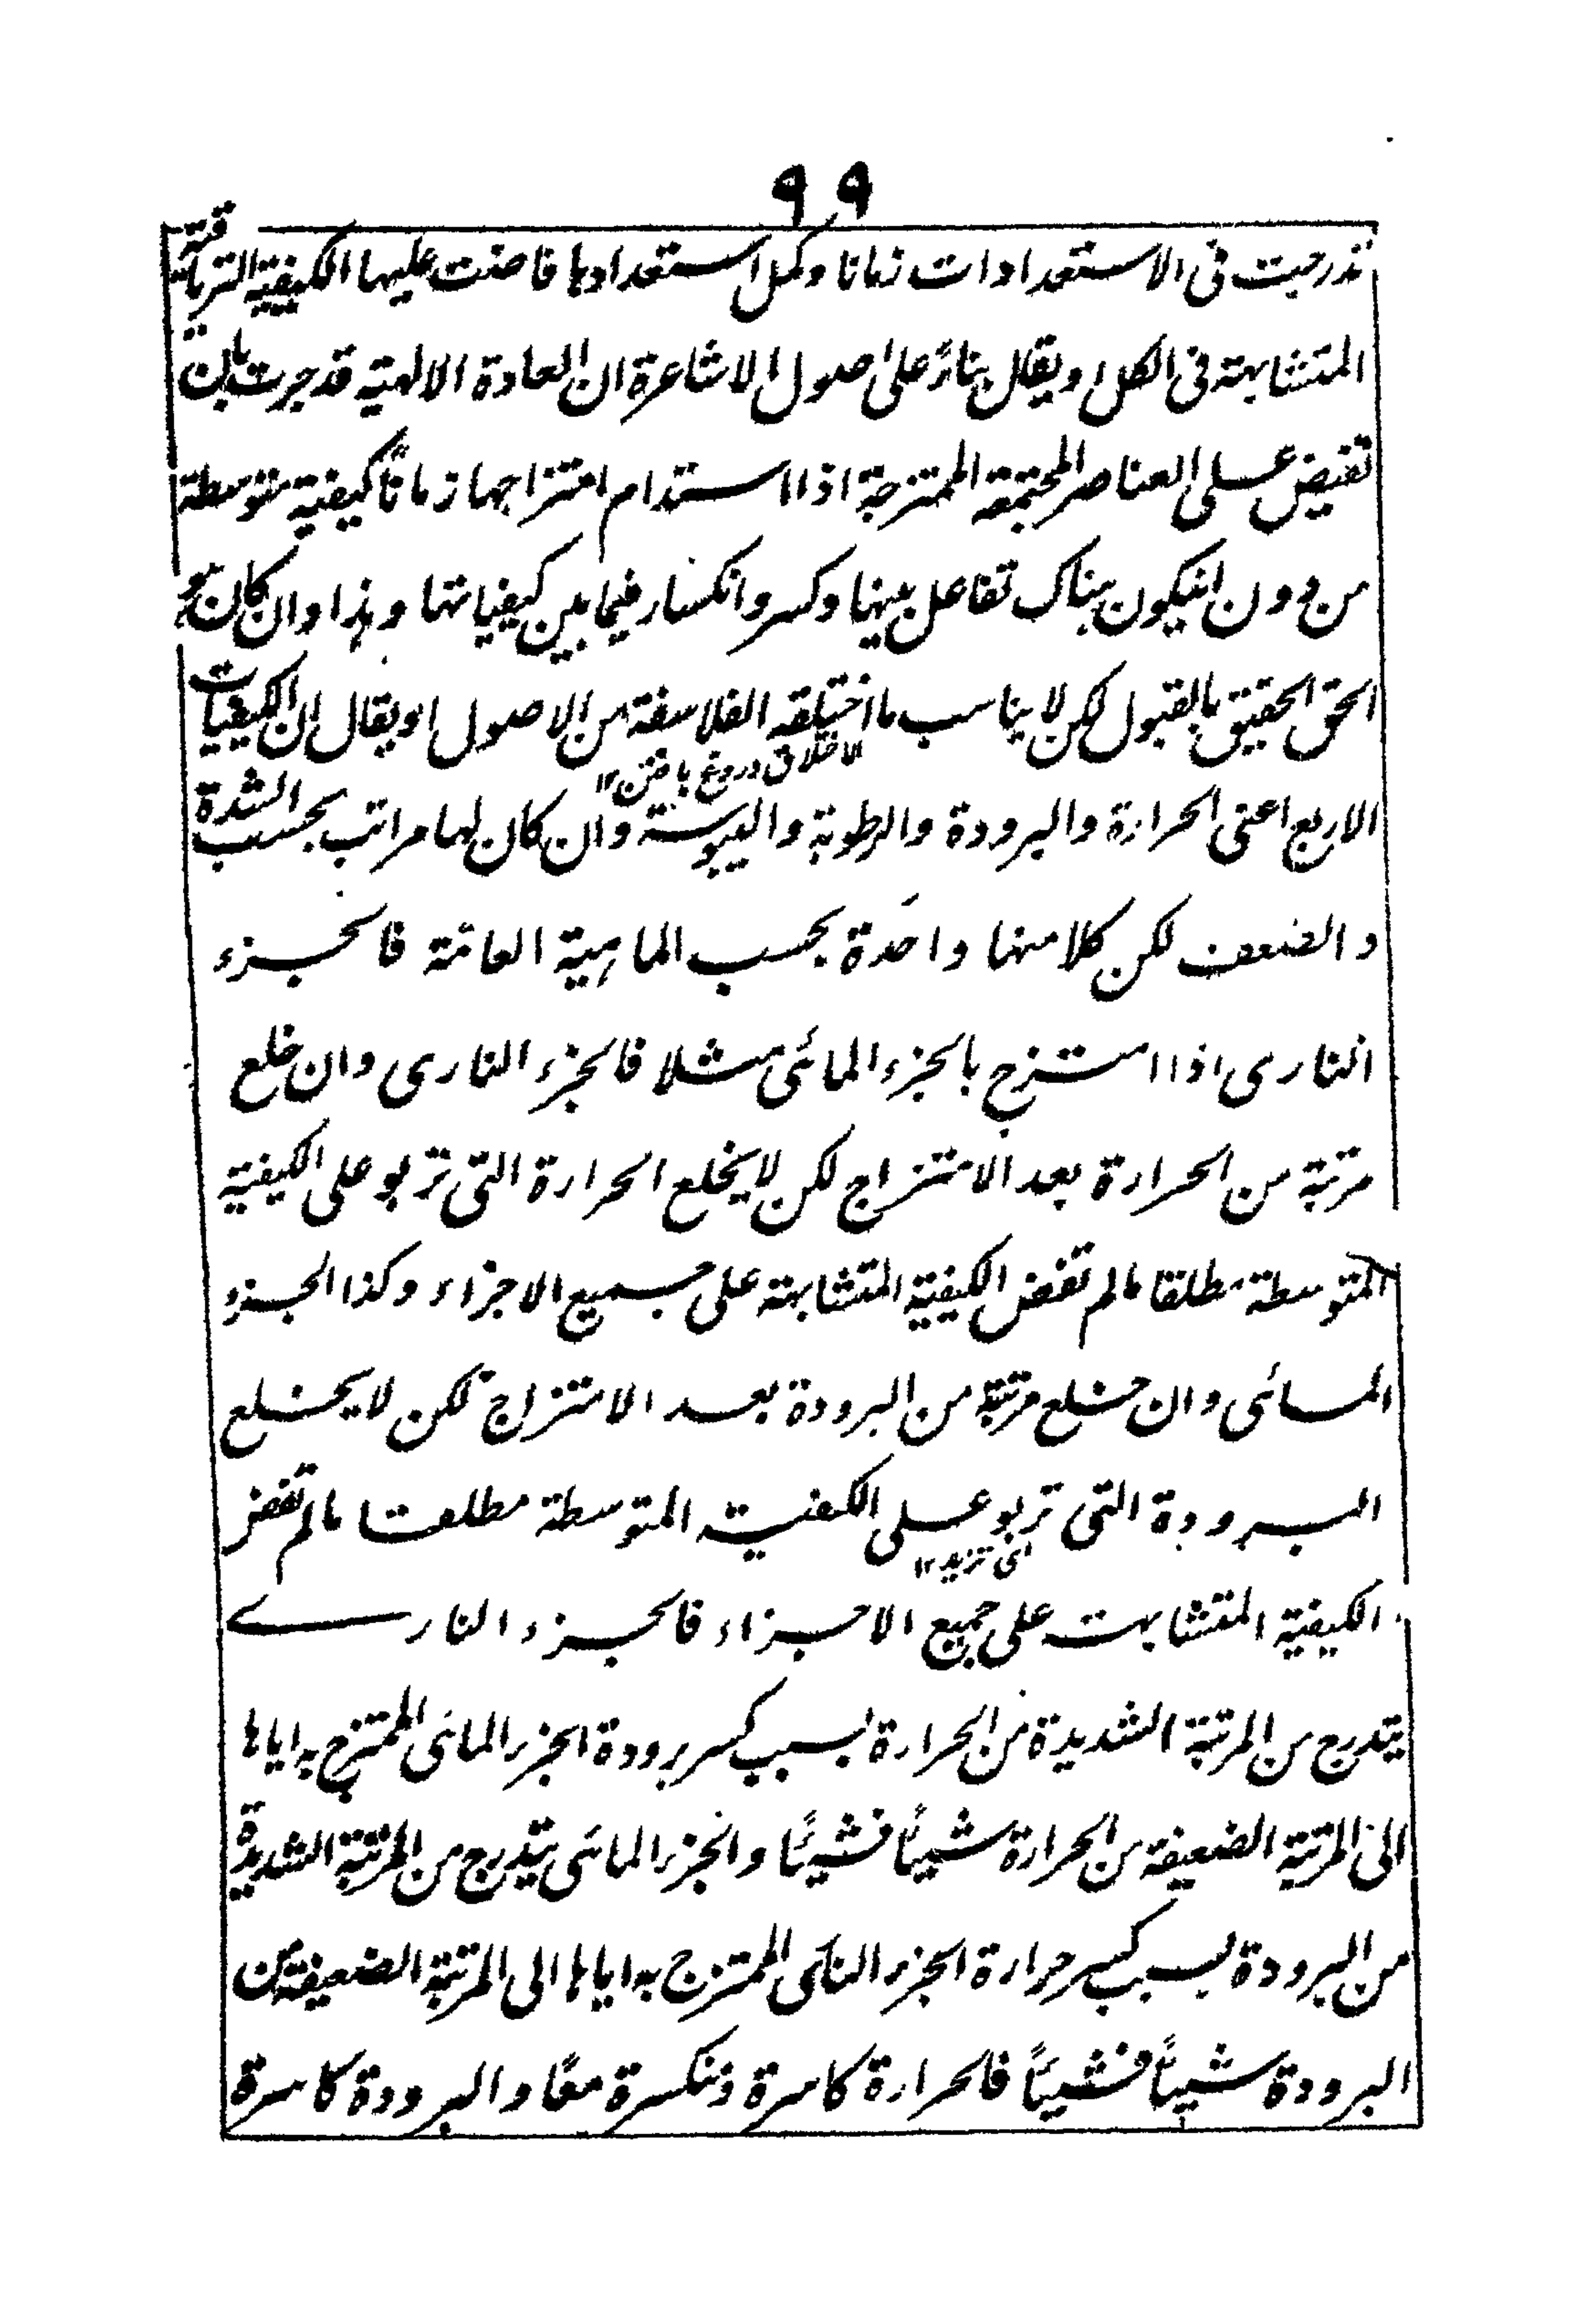 ٩٩
تدرجت فی الاستعدادات زمانا وکمل استعدادہا فاضت علیہا الکیفیۃ التریاقیۃ
المتشابہۃ فی الکل او یقال بناءً علی اصول الاشاعرۃ ان العادۃ الالہیۃ قد جرت بان
تفیض علی العناصر المجتمعۃ الممتزجۃ اذا استدام امتزاجہا زماناً کیفیۃ متوسطۃ
من دون ان یکون ہناک تفاعل بینہا وکسر وانکسار فیما بین کیفیاتہا وہذا وان کان ہو
الحق الحقیق بالقبول لکن لا یناسب ما اختلقہ الفلاسفۃ من الاصول او یقال ان الکیفیات
الاختلاق دروغ بافتن ١٢
الاربع اعنی الحرارۃ والبرودۃ والرطوبۃ والیبوسۃ وان کان لہا مراتب بحسب الشدۃ
والضعف لکن کلا منہا واحدۃ بحسب الماہیۃ العامۃ فالجزء
الناری اذا امتزج بالجزء المائی مثلا فالجزء الناری وان خلع
مرتبۃ من الحرارۃ بعد الامتزاج لکن لا یخلع الحرارۃ التی تربو علی الکیفیۃ
المتوسطۃ مطلقا مالم تفض الکیفیۃ المتشابہۃ علی جمیع الاجزاء وکذا الجزء
المائی وان خلع مرتبۃ من البرودۃ بعد الامتزاج لکن لا یخلع
البرودۃ التی تربو علی الکیفیۃ المتوسطۃ مطلقا مالم تفض
ای تزید ١٢
الکیفیۃ المتشابہۃ علی جمیع الاجزاء فالجزء الناری
یتدرج من المرتبۃ الشدیدۃ من الحرارۃ بسبب کسر برودۃ الجزء المائی الممتزج بہ ایاہا
الی المرتبۃ الضعیفۃ من الحرارۃ شیئاً فشیئاً والجزء المائی یتدرج من المرتبۃ الشدیدۃ
من البرودۃ بسبب کسر حرارۃ الجزء الناری الممتزج بہ ایاہا الی المرتبۃ الضعیفۃ من
البرودۃ شیئاً فشیئاً فالحرارۃ کاسرۃ ومنکسرۃ معًا والبرودۃ کاسرۃ